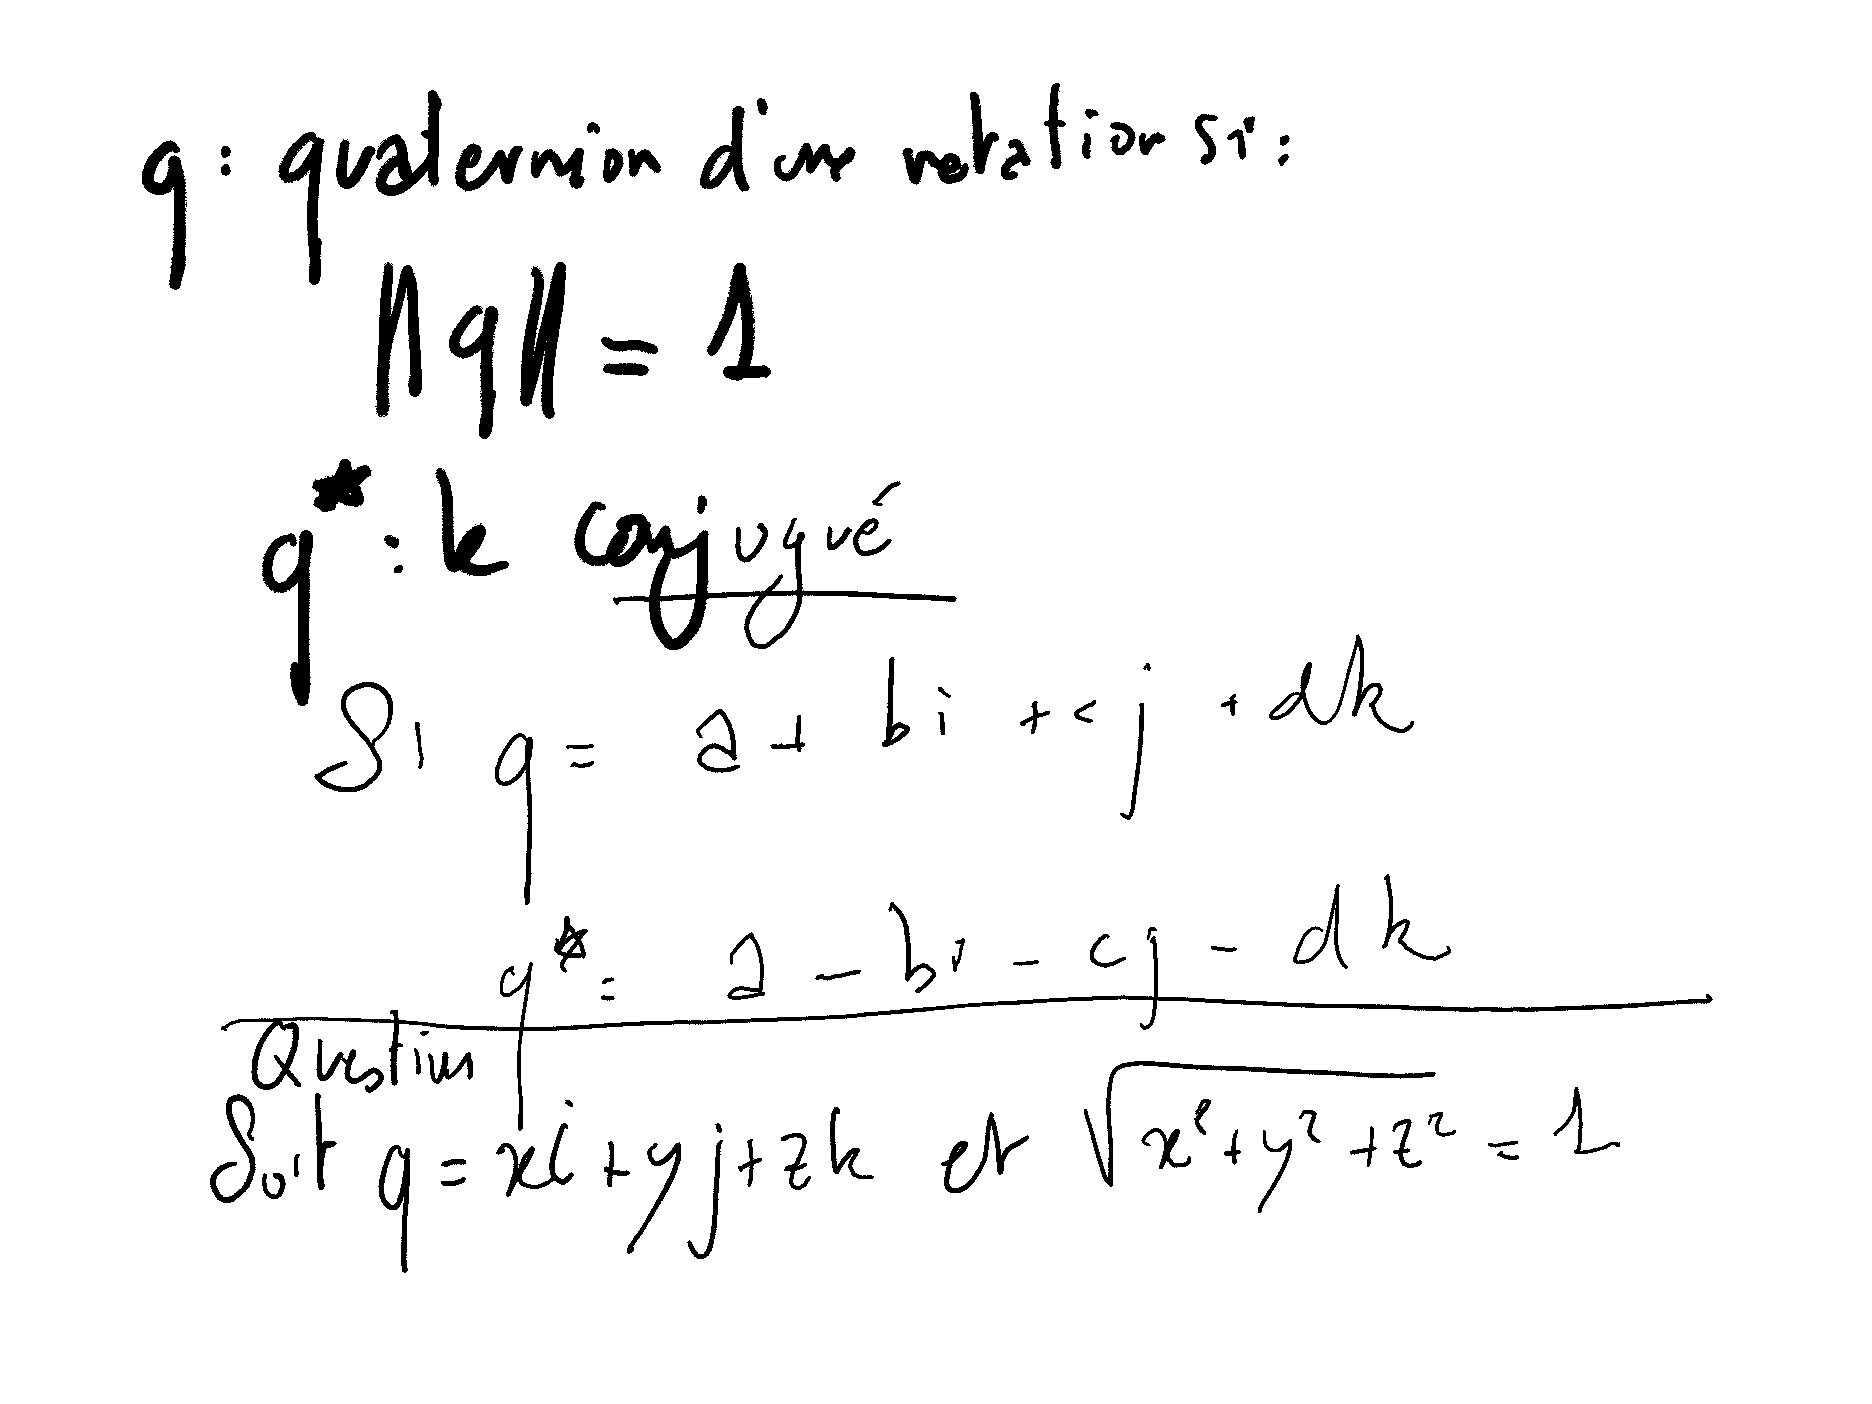 q : quaternion d'une rotation si :
||q|| = 1
q* : le conjugué
Si q = a + bi + cj + dk
q* = a - bi - cj - dk
Question
Soit q = xi + yj + zk et √(x² + y² + z²) = 1